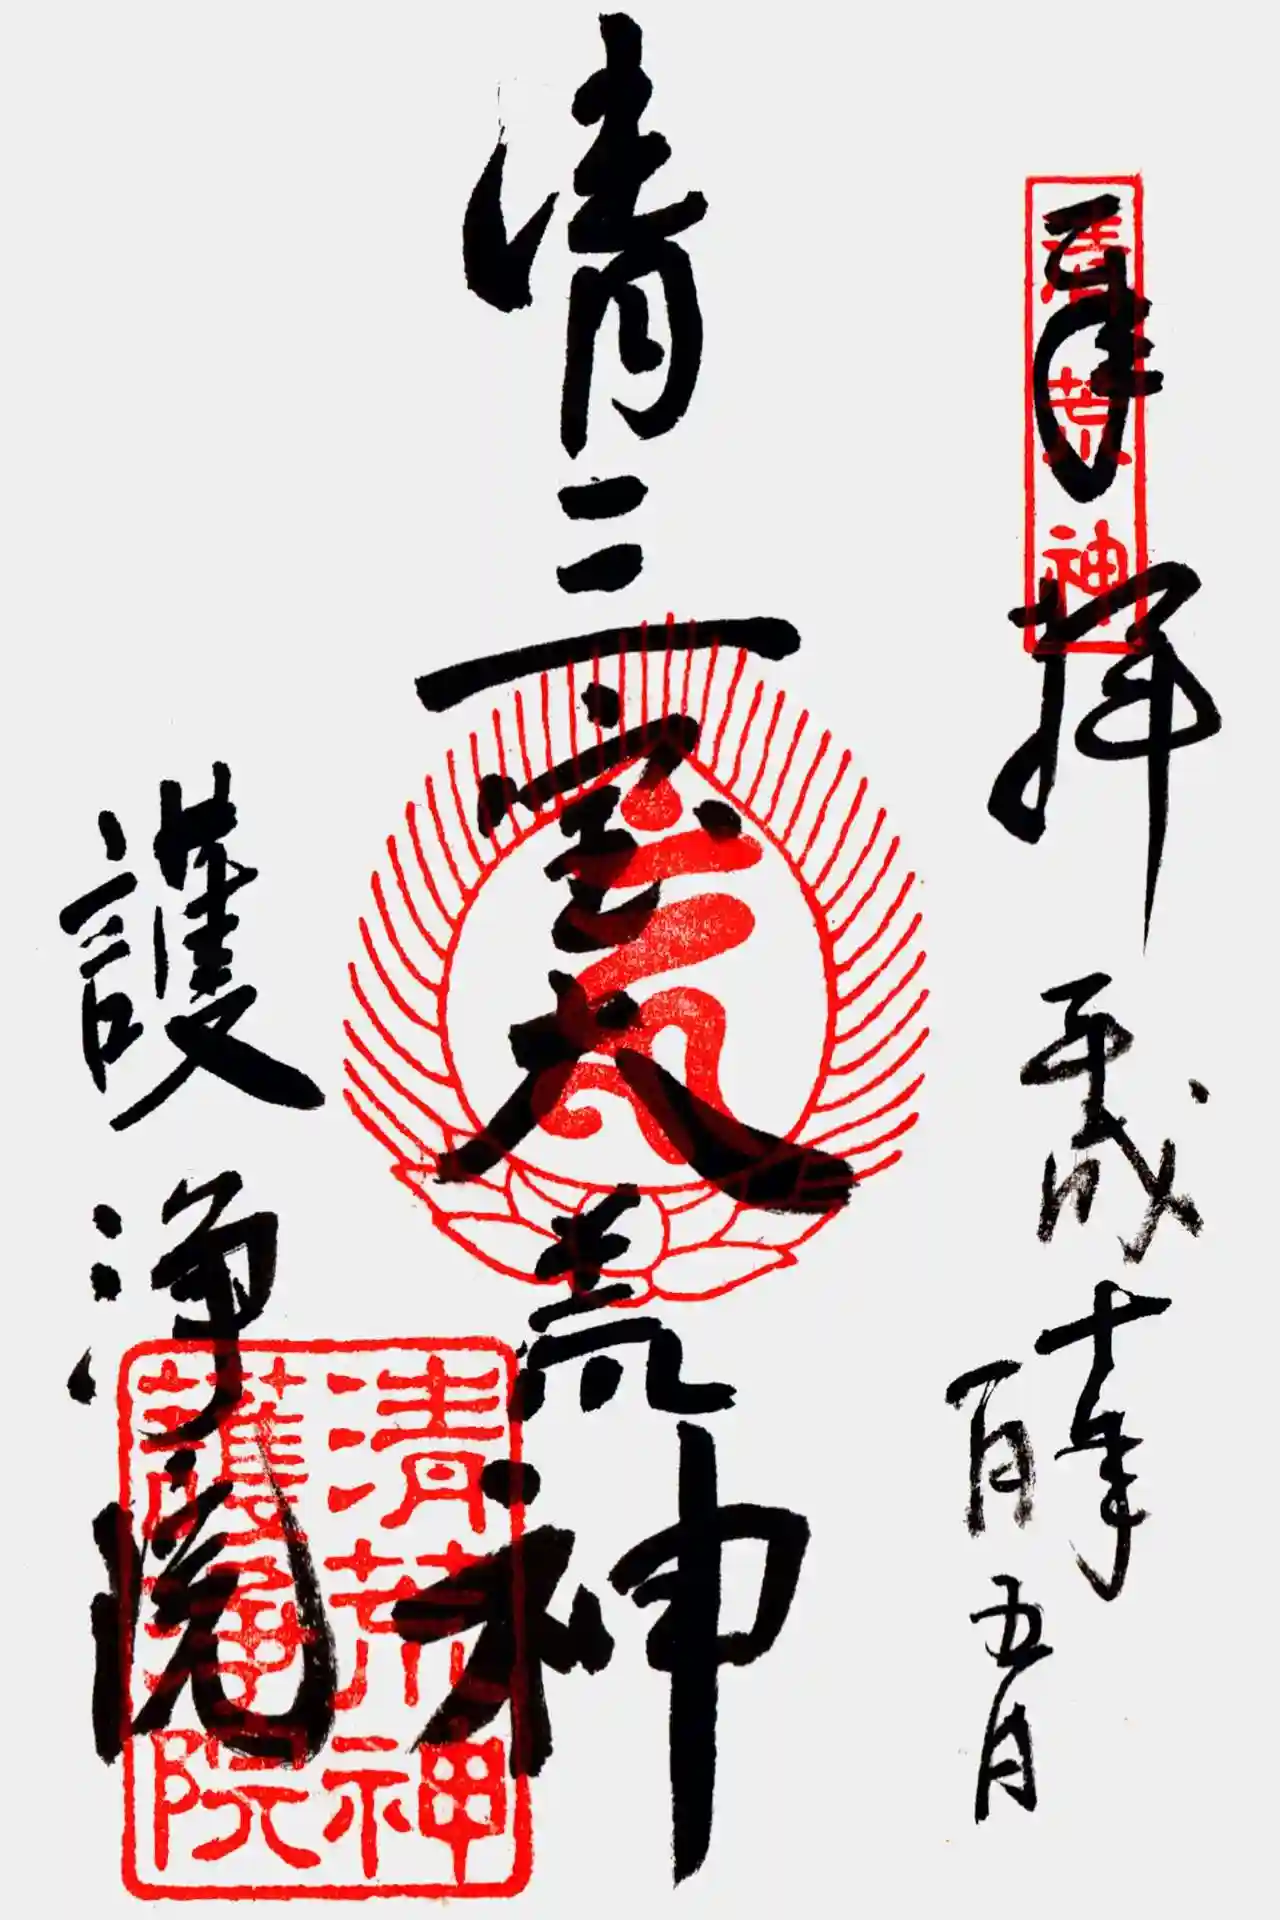 清荒神
奉拝
平成
一月五日
清三宝大荒神
護浄院
清荒神
護淨院